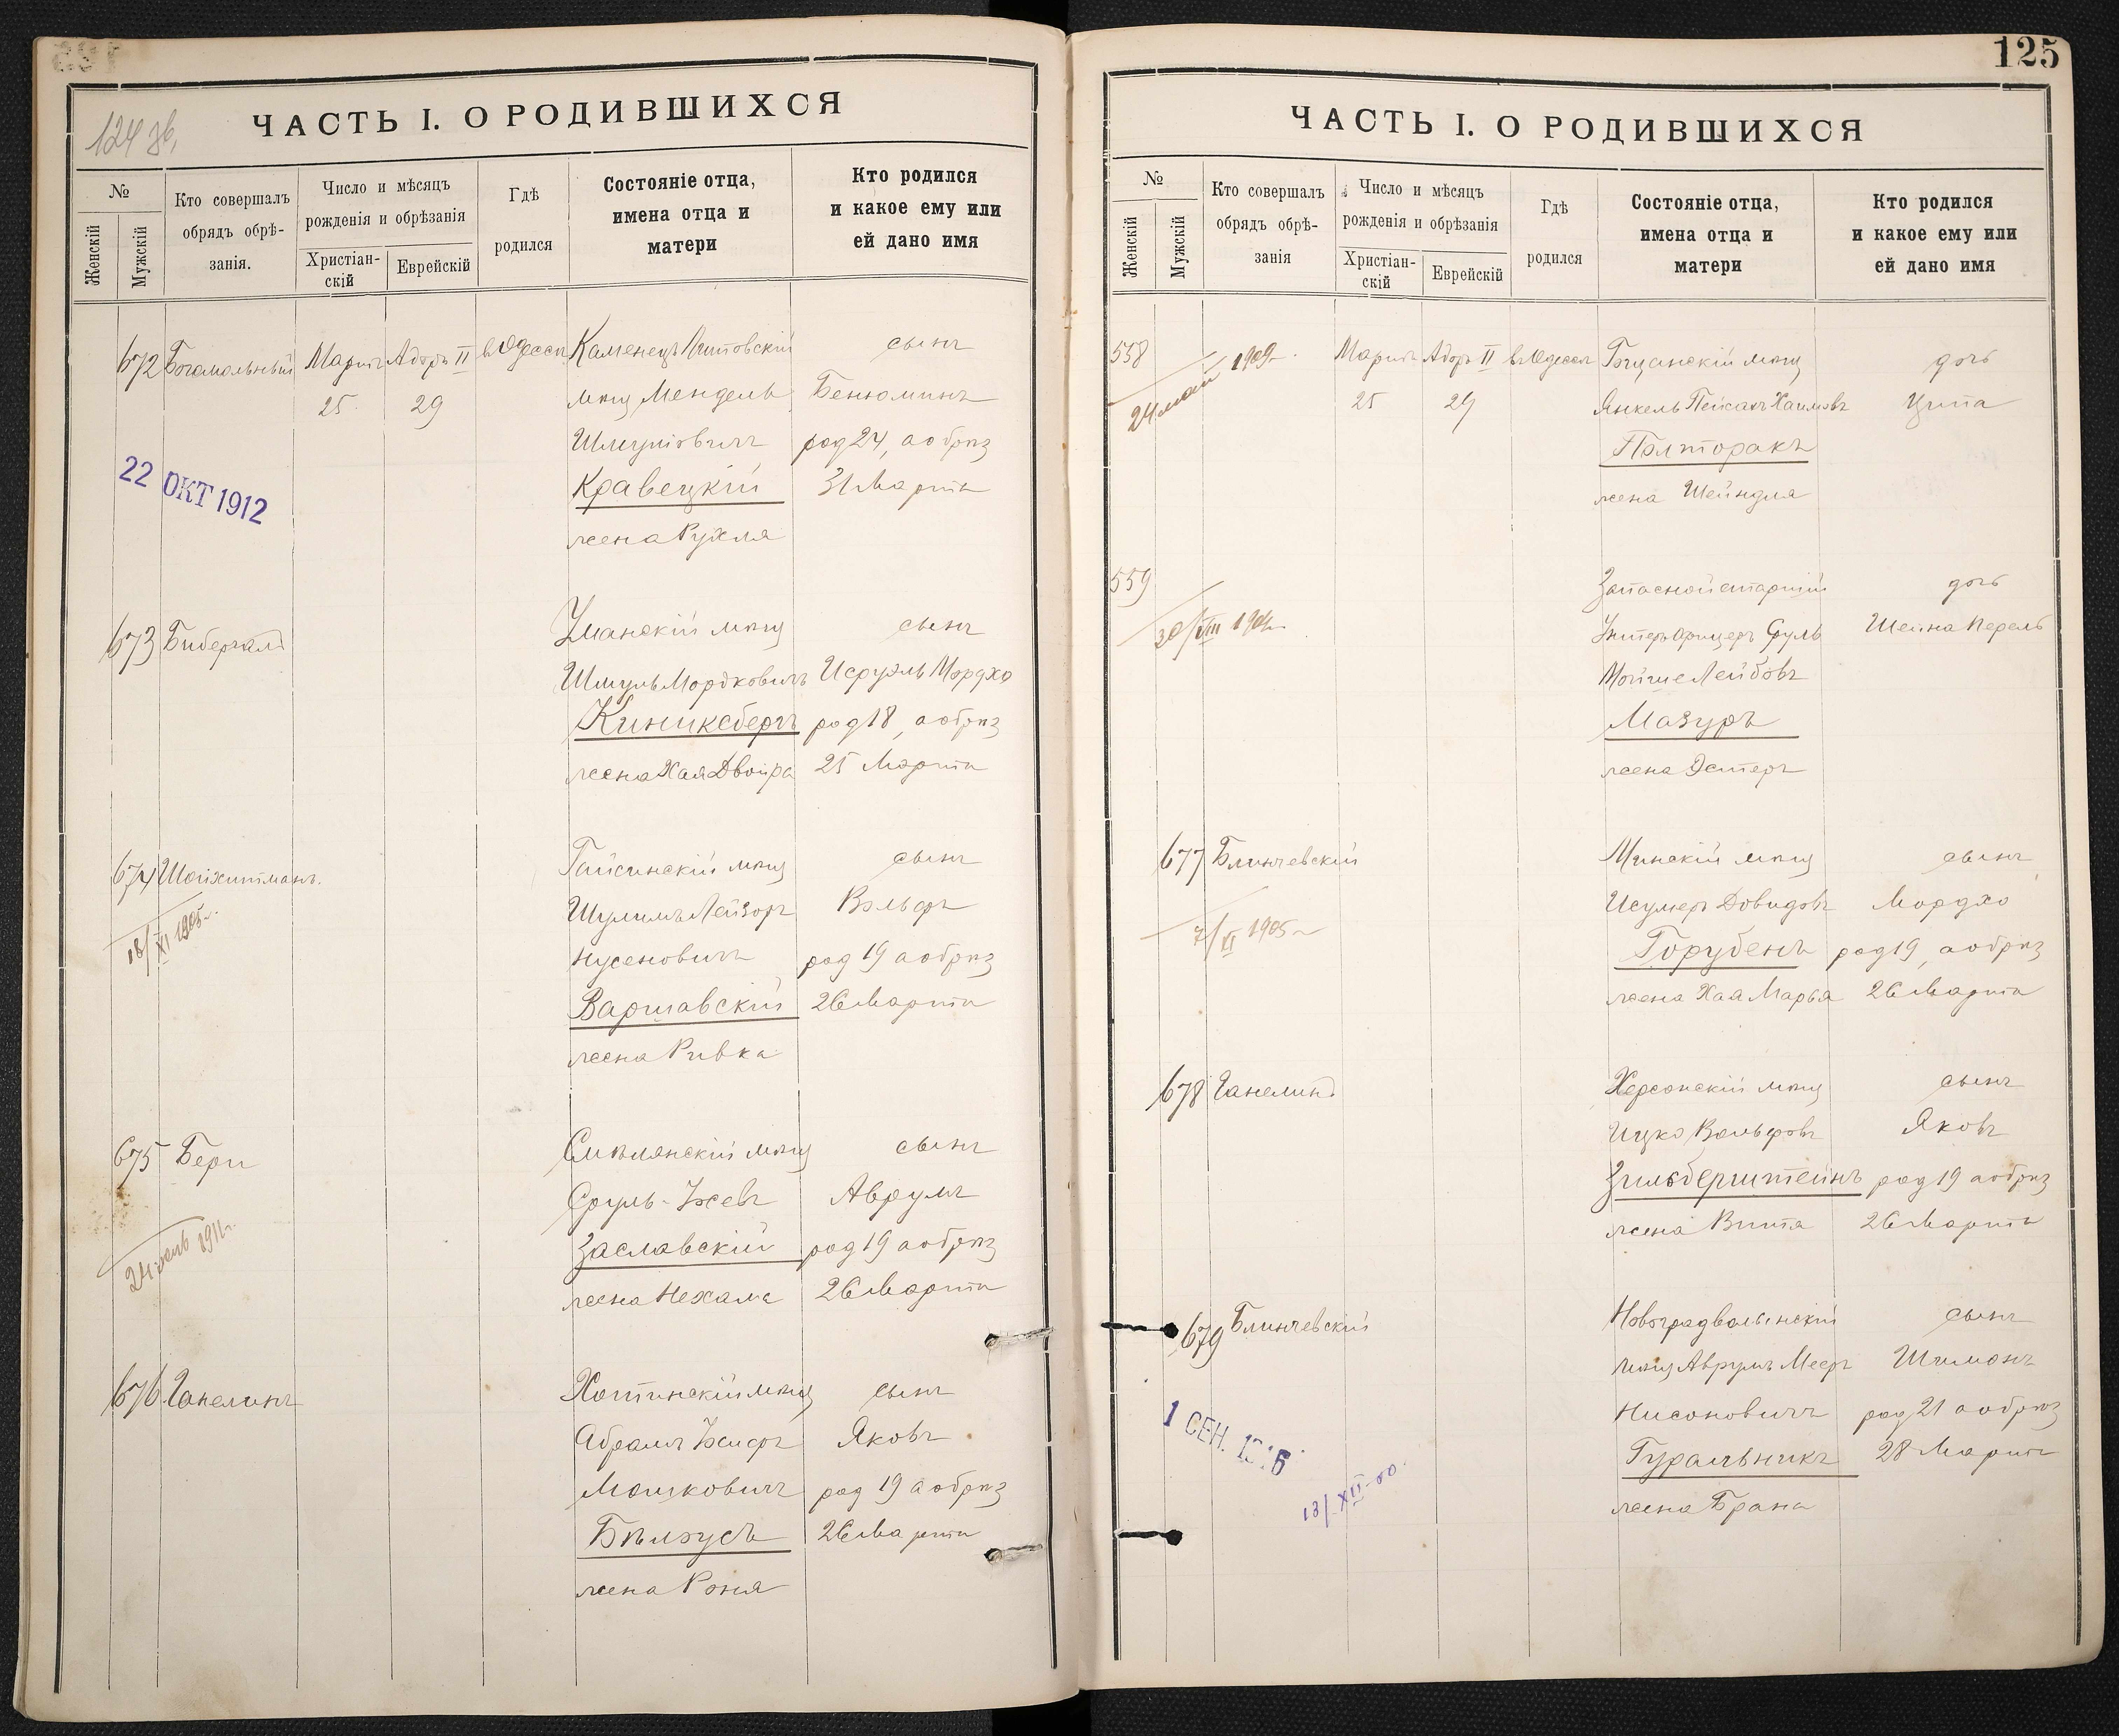 124 зв.
ЧАСТЬ I. О РОДИВШИХСЯ
№
Женскій
Мужскій
Кто совершалъ
обрядъ обрѣ-
занія.
Число и мѣсяцъ
рожденія и обрѣзанія
Христіан-
скій
Еврейскій
Гдѣ
родился
Состояніе отца,
имена отца и
матери
Кто родился
и какое ему или
ей дано имя
672 Богомольный Мартъ Адоръ II въ Одессѣ Каменецъ Литовскій сынъ
25 29 мѣщ Мендель Бенюминъ
Шмулiовичъ род 24, а обрѣз
Кравецкій 31 Марта
жена Рухля
22 ОКТ 1912
673 Бибергалъ Уманскій мѣщ сынъ
Шмуль Мордковичъ Исруэль Мордхо
Киниксбергъ род 18, а обрѣз
жена Хая Двойра 25 Марта
674 Шойхитманъ. Гайсинскій мѣщ сынъ
Шулимъ Лейзоръ Вольфъ
Нусеновичъ род 19 а обрѣз
Варшавскій 26 Марта
жена Ривка
18/XI 1905 г.
675 Бери Смѣлянскій мѣщ сынъ
Сруль- Аврумъ
Заславскій род 19 а обрѣз
жена Нехама 26 Марта
24 1911 г.
676 Ганелинъ Хотинскій мѣщ сынъ
Абрамъ Яковъ
Мошковичъ род 19 а обрѣз
Бѣлоусъ 26 Марта
жена Роня
125
ЧАСТЬ I. О РОДИВШИХСЯ
№
Женскій
Мужскій
Кто совершалъ
обрядъ обрѣ-
занія
Число и мѣсяцъ
рожденія и обрѣзанія
Христіан-
скій
Еврейскій
Гдѣ
родился
Состояніе отца,
имена отца и
матери
Кто родился
и какое ему или
ей дано имя
558 Мартъ Адоръ II въ Одессѣ мѣщ дочь
24 мая 1909 г.
25 29 Янкель Пейсахъ Хаимовъ Ципа
Полторакъ
жена Шейндля
559 Запасной старшій дочь
30/VIII Унтеръ офицеръ Сруль Шейна Перель
Мойше Лейбовъ
Мазуръ
жена Эстеръ
677 Блинчевскій Минскій мѣщ сынъ
Исумеръ Довидовъ Мордхо
7/XI 1905 г
Горубень род 19, а обрѣз
жена Хая Марья 26 Марта
678 Ганелинъ Херсонскій мѣщ сынъ
Ицко Вольфовъ Яковъ
Зильберштейнъ род 19 а обрѣз
жена Вита 26 Марта
679 Блинчевскій Новоградволынскій сынъ
мѣщ Аврумъ Мееръ Шимонъ
Нисоновичъ род 21 а обрѣз
Гуральникъ 28 Марта
жена Брана
1 СЕН.
13/XII-00.